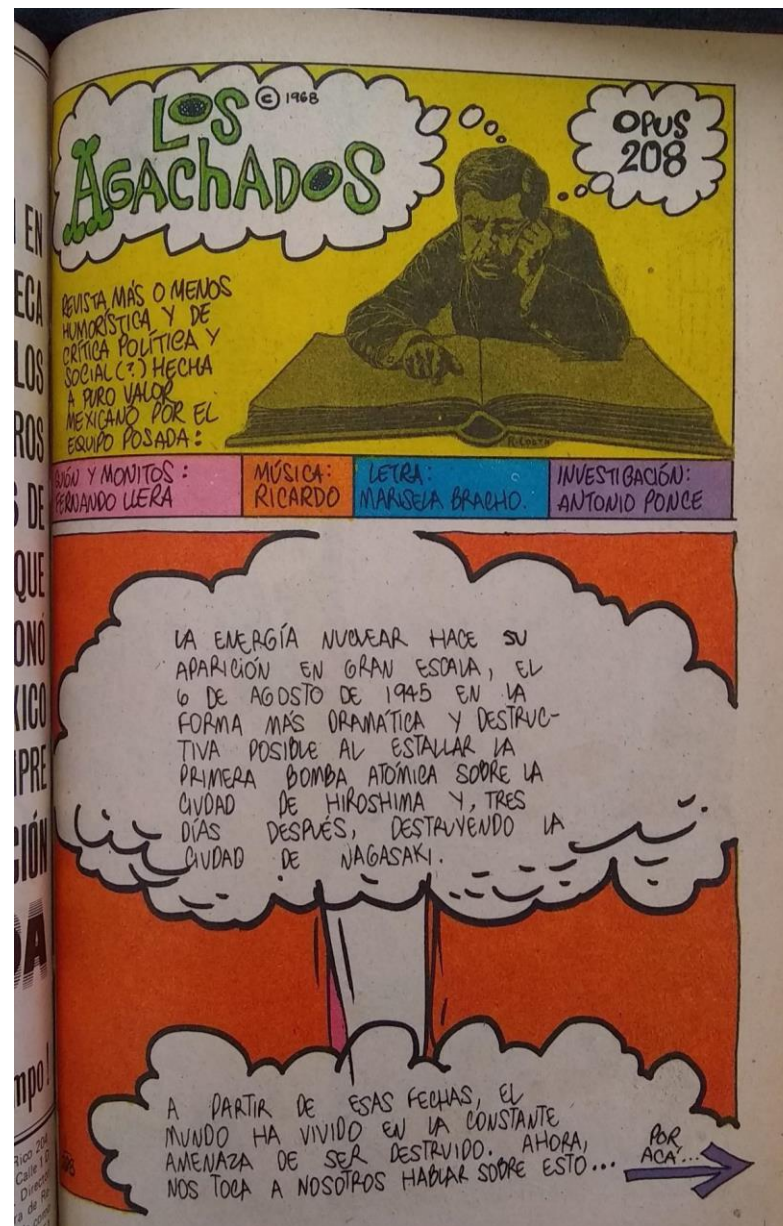 EN
ECA
LOS
ROS
DE
QUE
ONÓ
XICO
MPRE
CIÓN
DA
mpo!
Rico 204
Calle 1 D
Director
ra de Re
LOS © 1968
AGACHADOS
OPUS
208
REVISTA MÁS O MENOS
HUMORÍSTICA Y DE
CRÍTICA POLÍTICA Y
SOCIAL (?) HECHA
A PURO VALOR
MEXICANO POR EL
EQUIPO POSADA:
R. COSTA
GUIÓN Y MONITOS:
FERNANDO LLERA
MÚSICA:
RICARDO
LETRA:
MARISELA BRACHO.
INVESTIGACIÓN:
ANTONIO PONCE
LA ENERGÍA NUCLEAR HACE SU
APARICIÓN EN GRAN ESCALA, EL
6 DE AGOSTO DE 1945 EN LA
FORMA MÁS DRAMÁTICA Y DESTRUC-
TIVA POSIBLE AL ESTALLAR LA
PRIMERA BOMBA ATÓMICA SOBRE LA
CIUDAD DE HIROSHIMA Y, TRES
DÍAS DESPUÉS, DESTRUYENDO LA
CIUDAD DE NAGASAKI.
A PARTIR DE ESAS FECHAS, EL
MUNDO HA VIVIDO EN LA CONSTANTE
AMENAZA DE SER DESTRUIDO. AHORA,
NOS TOCA A NOSOTROS HABLAR SOBRE ESTO...
POR
ACÁ...